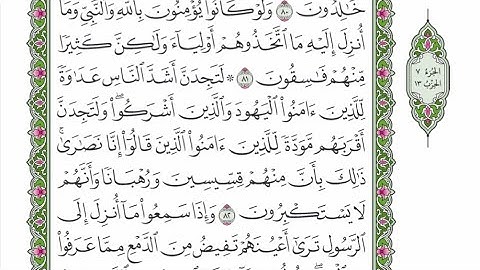 خَٰلِدُونَ ٨٠ وَلَوْ كَانُوا۟ يُؤْمِنُونَ بِٱللَّهِ وَٱلنَّبِىِّ وَمَآ
أُنزِلَ إِلَيْهِ مَا ٱتَّخَذُوهُمْ أَوْلِيَآءَ وَلَٰكِنَّ كَثِيرًا
مِّنْهُمْ فَٰسِقُونَ ٨١ ۞ لَتَجِدَنَّ أَشَدَّ ٱلنَّاسِ عَدَٰوَةً
لِّلَّذِينَ ءَامَنُوا۟ ٱلْيَهُودَ وَٱلَّذِينَ أَشْرَكُوا۟ۖ وَلَتَجِدَنَّ
أَقْرَبَهُم مَّوَدَّةً لِّلَّذِينَ ءَامَنُوا۟ ٱلَّذِينَ قَالُوٓا۟ إِنَّا نَصَٰرَىٰۚ
ذَٰلِكَ بِأَنَّ مِنْهُمْ قِسِّيسِينَ وَرُهْبَانًا وَأَنَّهُمْ
لَا يَسْتَكْبِرُونَ ٨٢ وَإِذَا سَمِعُوا۟ مَآ أُنزِلَ إِلَى
ٱلرَّسُولِ تَرَىٰٓ أَعْيُنَهُمْ تَفِيضُ مِنَ ٱلدَّمْعِ مِمَّا عَرَفُوا۟
الجزء ٧
الحزب ١٣